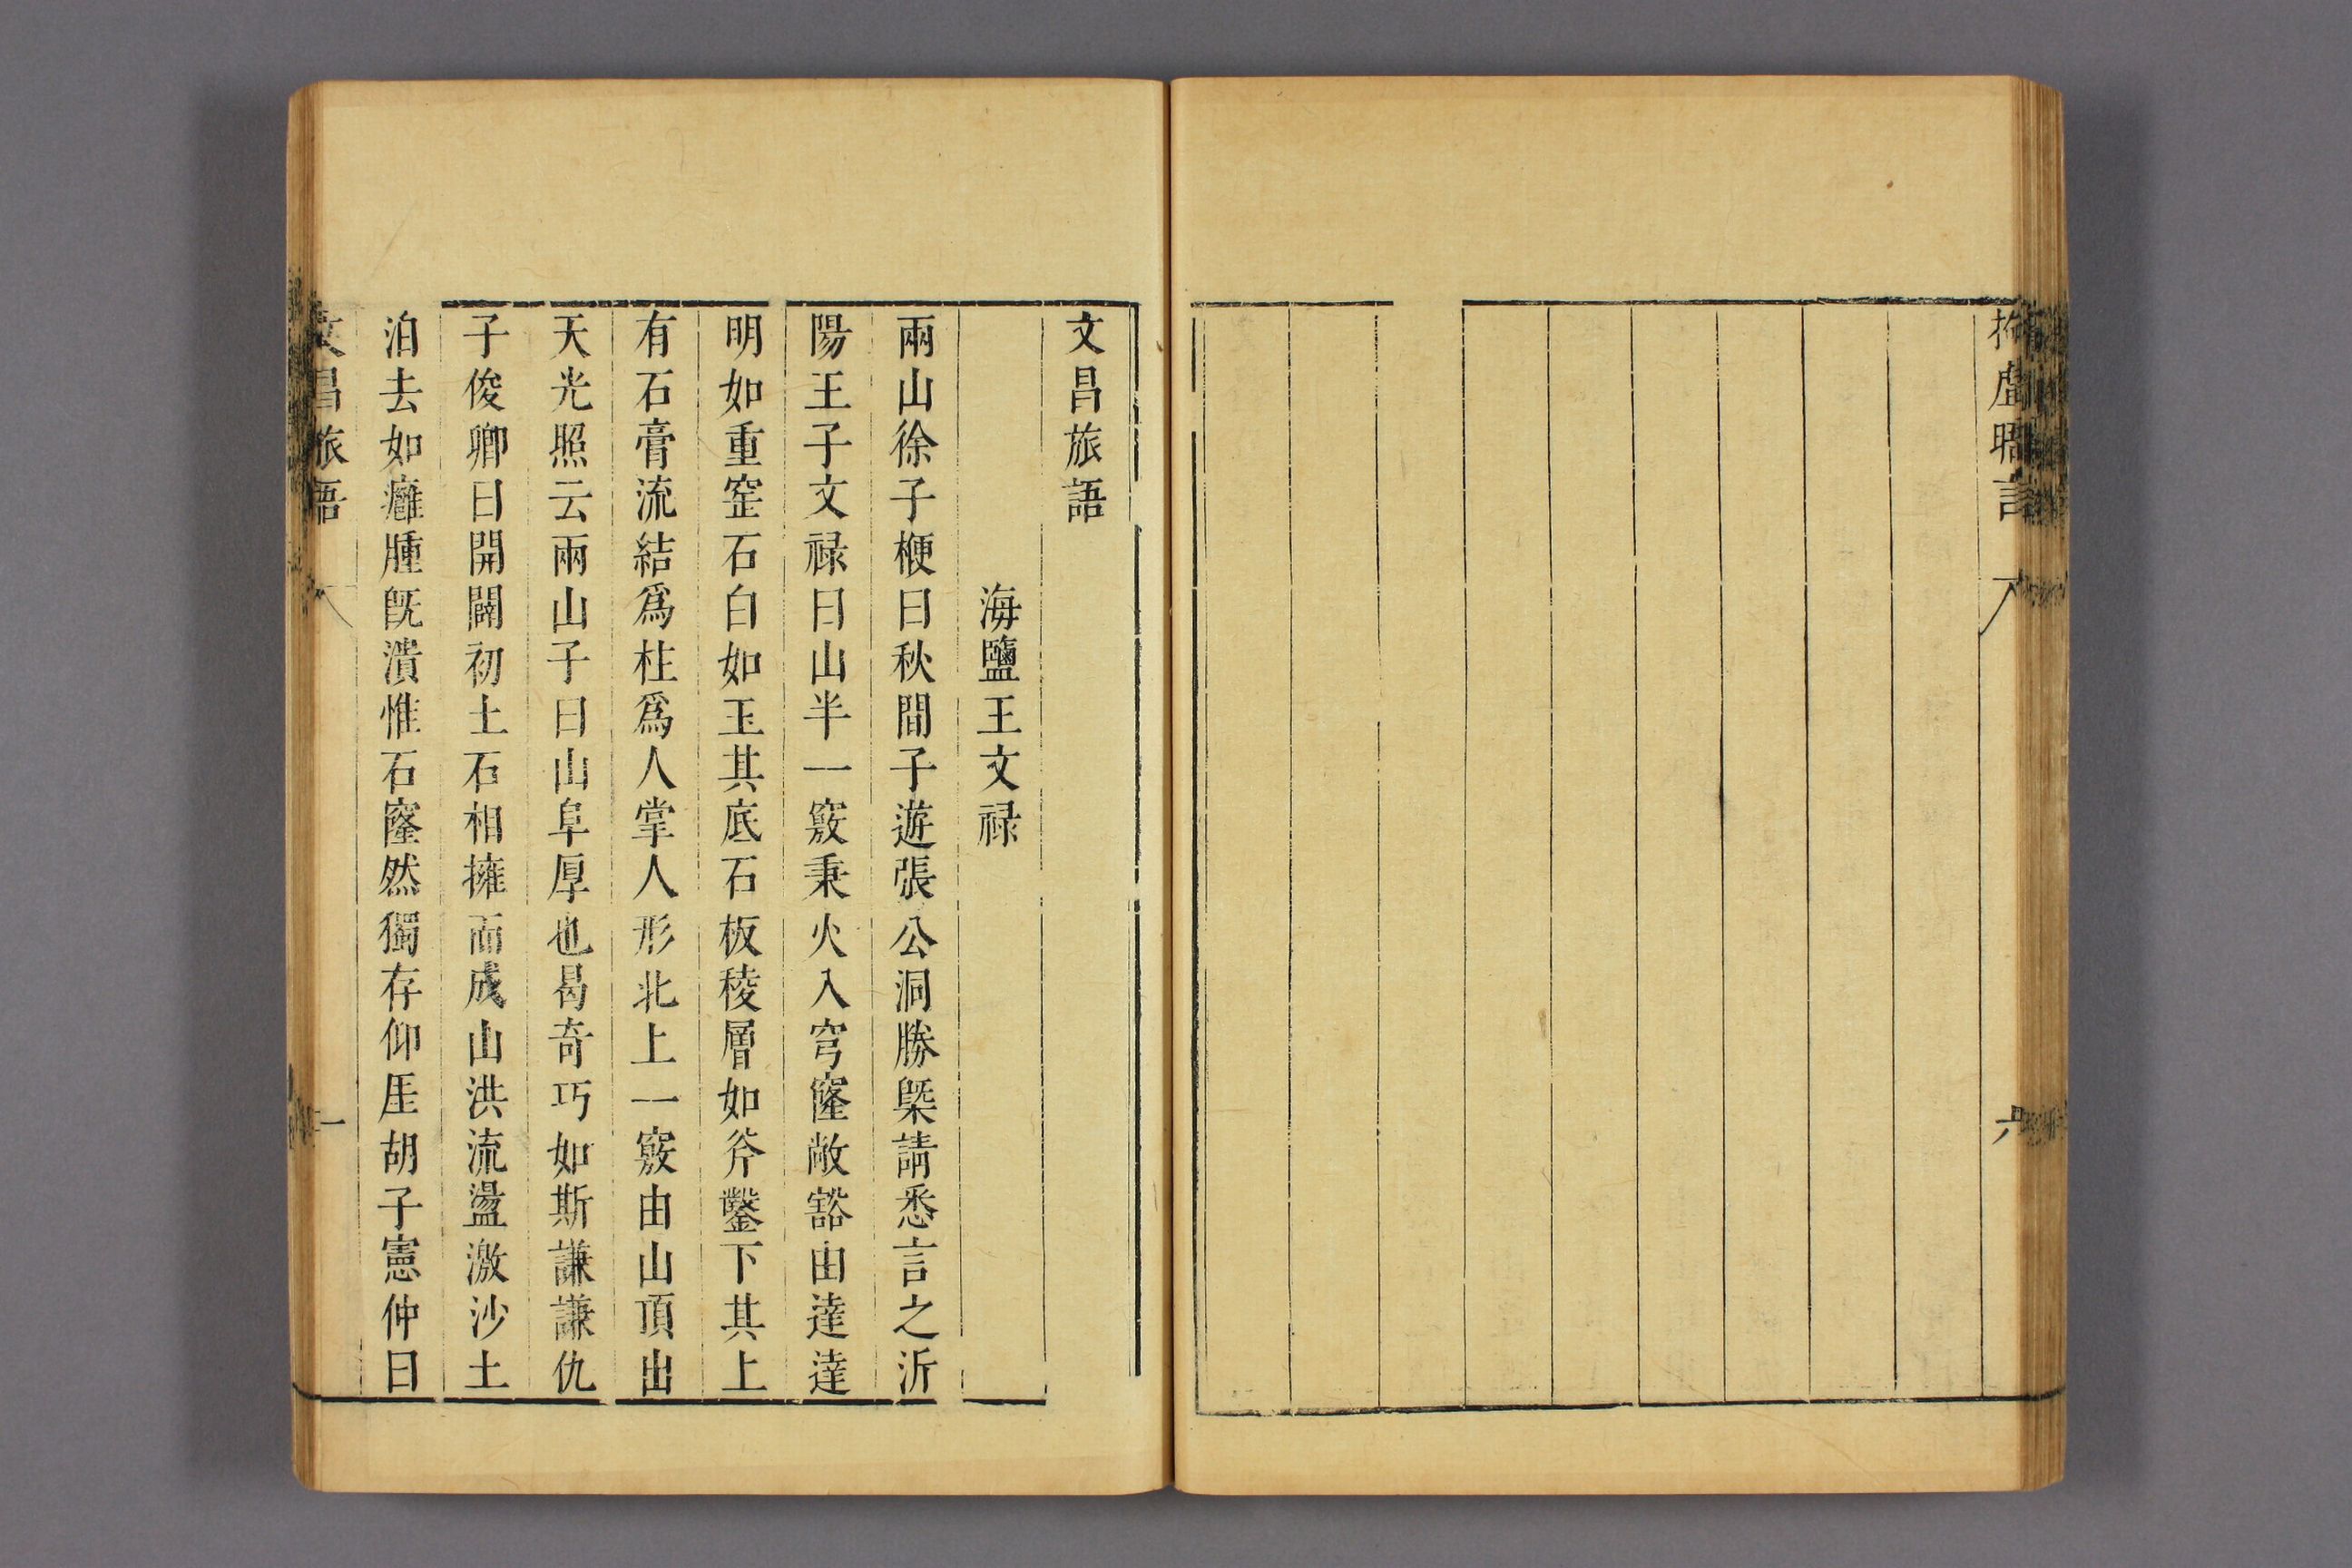 拘虛晤言
六
文昌旅語
海鹽王文祿
兩山徐子楩曰秋間子遊張公洞勝槩請悉言之沂
陽王子文祿曰山半一竅秉火入穹窿敞豁由達達
明如重窐石白如玉其底石板稜層如斧鑿下其上
有石膏流結爲柱爲人掌人形北上一竅由山頂出
天光照云兩山子曰山阜厚也曷奇巧如斯謙謙仇
子俊卿曰開闢初土石相擁而成山洪流盪激沙土
泊去如癰腫旣潰惟石窿然獨存仰厓胡子憲仲曰
文昌旅語
一